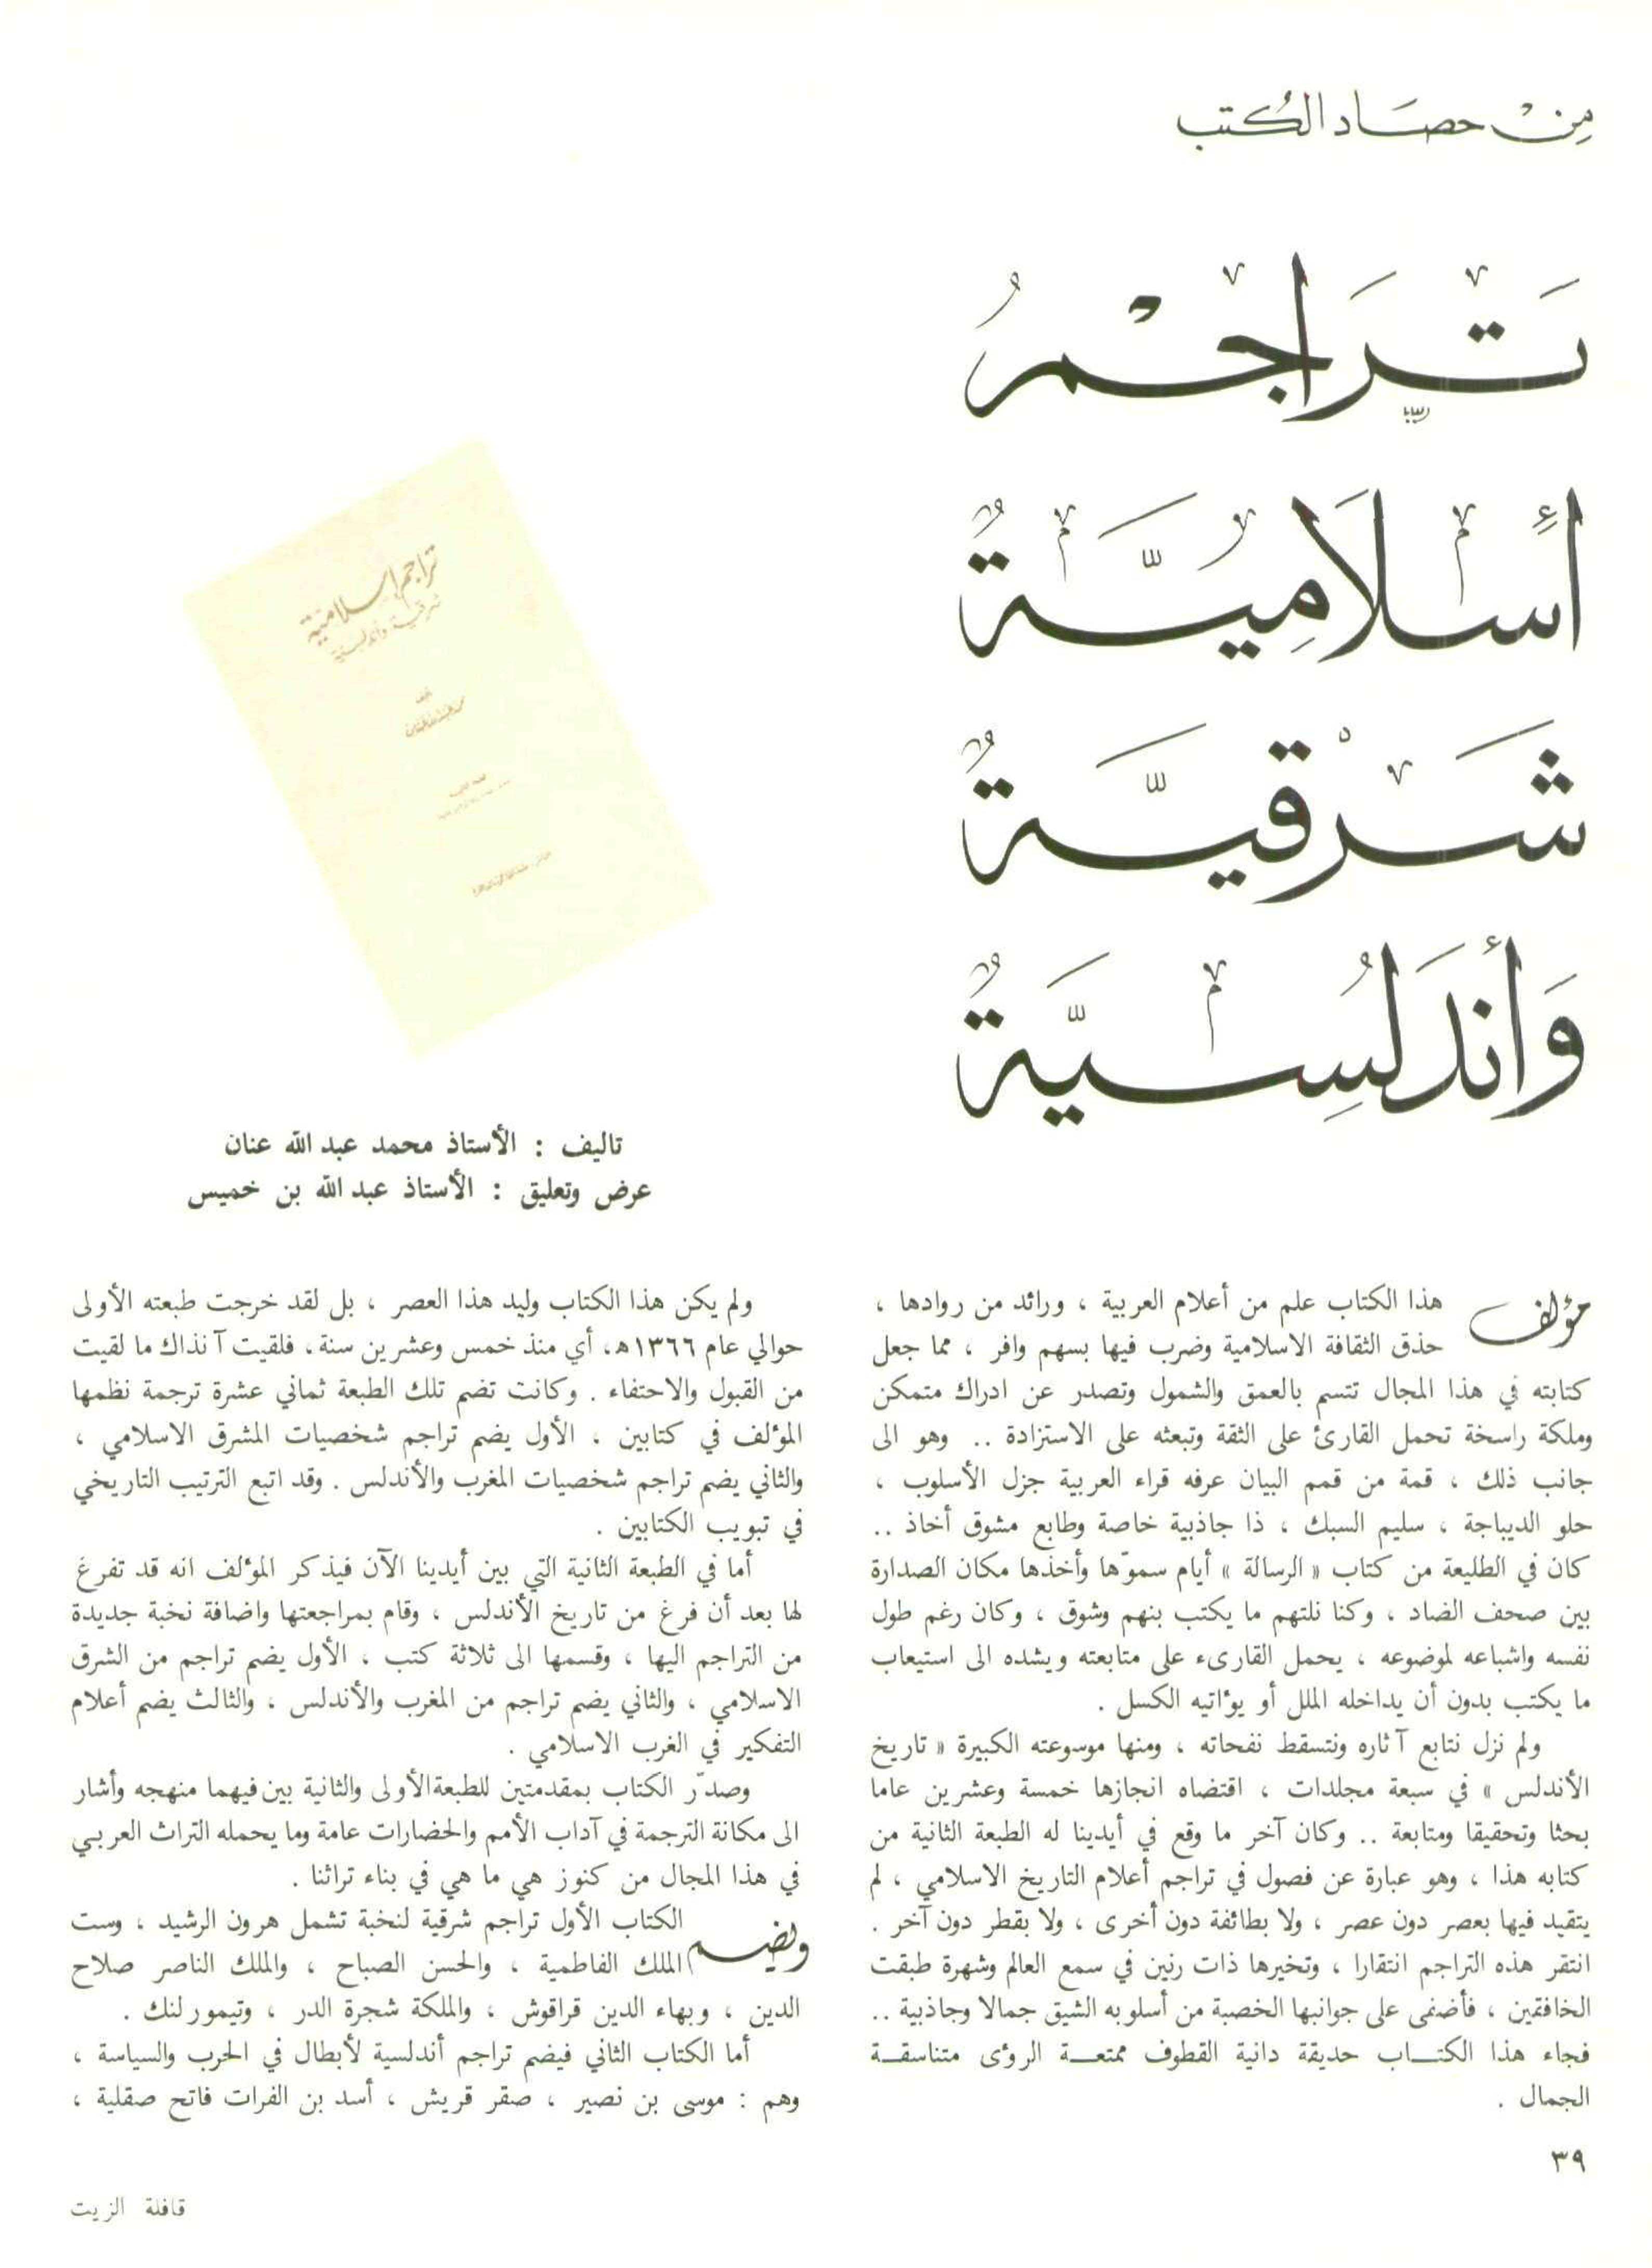 مِنْ حصَاد الكُتب
تَرَاجمُ
أسلَاميَّةٌ
شَرقيَّةٌ
وَأندَلُسِيَّةٌ
تراجم إسلامية
شرقية وأندلسية
تاليف : الأستاذ محمد عبد الله عنان
عرض وتعليق : الأستاذ عبد الله بن خميس
مؤلف هذا الكتاب علم من أعلام العربية ، ورائد من روادها ،
حذق الثقافة الاسلامية وضرب فيها بسهم وافر ، مما جعل
كتابته في هذا المجال تتسم بالعمق والشمول وتصدر عن ادراك متمكن
وملكة راسخة تحمل القارئ على الثقة وتبعثه على الاستزادة .. وهو الى
جانب ذلك ، قمة من قمم البيان عرفه قراء العربية جزل الأسلوب ،
حلو الديباجة ، سليم السبك ، ذا جاذبية خاصة وطابع مشوق أخاذ ..
كان في الطليعة من كتاب « الرسالة » أيام سموّها وأخذها مكان الصدارة
بين صحف الضاد ، وكنا نلتهم ما يكتب بنهم وشوق ، وكان رغم طول
نفسه واشباعه لموضوعه ، يحمل القارىء على متابعته ويشده الى استيعاب
ما يكتب بدون أن يداخله الملل أو يؤاتيه الكسل .
ولم نزل نتابع آثاره ونتسقط نفحاته ، ومنها موسوعته الكبيرة « تاريخ
الأندلس » في سبعة مجلدات ، اقتضاه انجازها خمسة وعشرين عاما
بحثا وتحقيقا ومتابعة .. وكان آخر ما وقع في أيدينا له الطبعة الثانية من
كتابه هذا ، وهو عبارة عن فصول في تراجم أعلام التاريخ الاسلامي ، لم
يتقيد فيها بعصر دون عصر ، ولا بطائفة دون أخرى ، ولا بقطر دون آخر .
انتقر هذه التراجم انتقارا ، وتخيرها ذات رنين في سمع العالم وشهرة طبقت
الخافقين ، فأضفى على جوانبها الخصبة من أسلوبه الشيق جمالا وجاذبية ..
فجاء هذا الكتـــاب حديقة دانية القطوف ممتعــة الرؤى متناسقــة
الجمال .
ولم يكن هذا الكتاب وليد هذا العصر ، بل لقد خرجت طبعته الأولى
حوالي عام ١٣٦٦ه‍، أي منذ خمس وعشرين سنة، فلقيت آنذاك ما لقيت
من القبول والاحتفاء . وكانت تضم تلك الطبعة ثماني عشرة ترجمة نظمها
المؤلف في كتابين ، الأول يضم تراجم شخصيات المشرق الاسلامي ،
والثاني يضم تراجم شخصيات المغرب والأندلس . وقد اتبع الترتيب التاريخي
في تبويب الكتابين .
أما في الطبعة الثانية التي بين أيدينا الآن فيذكر المؤلف انه قد تفرغ
لها بعد أن فرغ من تاريخ الأندلس ، وقام بمراجعتها واضافة نخبة جديدة
من التراجم اليها ، وقسمها الى ثلاثة كتب ، الأول يضم تراجم من الشرق
الاسلامي ، والثاني يضم تراجم من المغرب والأندلس ، والثالث يضم أعلام
التفكير في الغرب الاسلامي .
وصدّر الكتاب بمقدمتين للطبعة الأولى والثانية بين فيهما منهجه وأشار
الى مكانة الترجمة في آداب الأمم والحضارات عامة وما يحمله التراث العربي
في هذا المجال من كنوز هي ما هي في بناء تراثنا .
ويضم الكتاب الأول تراجم شرقية لنخبة تشمل هرون الرشيد ، وست
الملك الفاطمية ، والحسن الصباح ، والملك الناصر صلاح
الدين ، وبهاء الدين قراقوش ، والملكة شجرة الدر ، وتيمورلنك .
أما الكتاب الثاني فيضم تراجم أندلسية لأبطال في الحرب والسياسة ،
وهم : موسى بن نصير ، صقر قريش ، أسد بن الفرات فاتح صقلية ،
٣٩
قافلة الزيت